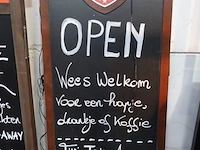 OPEN
Wees Welkom
Voor een hapje,
drankje of koffie
-AWAY